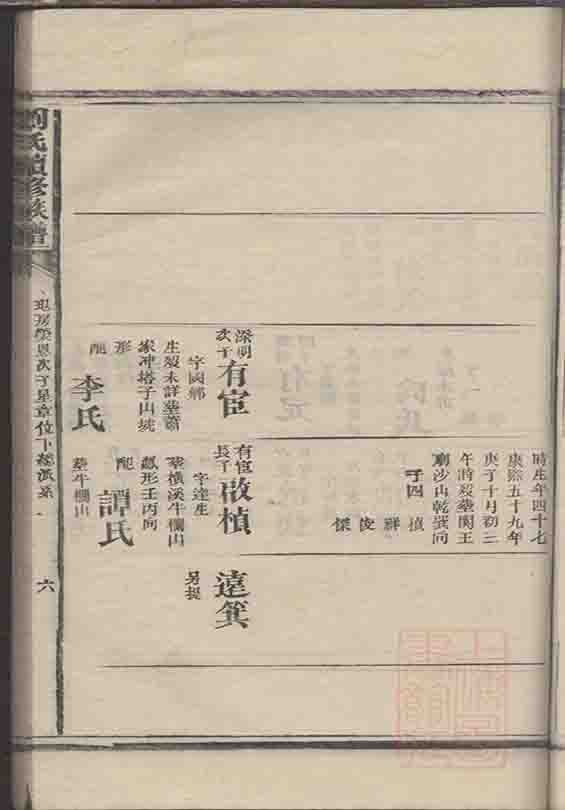 時生年四十七
康熙五十九年
庚子十月初三
午時歿葬關王
廟沙山乾巽向
子四
楨
祥
俊
傑
深明
次子
有宦
字國卿
生歿未詳葬蕭
家冲塔子山坡
形
配
李氏
有宦
長子
啟楨
字達生
葬橫溪牛欄山
瓠形壬丙向
配
譚氏
葬牛欄山
遠箕
另提
氏續修族譜
房榮恩次子星章位下
六